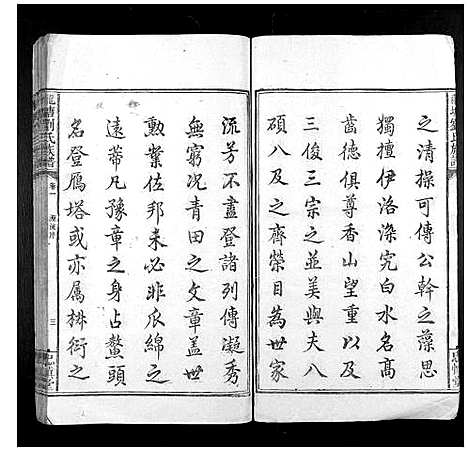 之清操可傳公幹之藻思
獨擅伊洛深究白水名高
齒德俱尊香山望重以及
三俊三宗之並美與夫八
碩八及之齊榮目為世家
流芳不盡登諸列傳凝秀
無窮况青田之文章蓋世
勲業佐邦未必非瓜綿之
遠蒂凡豫章之身占鰲頭
名登雁塔或亦属椒衍之
劉氏族譜
卷一
三